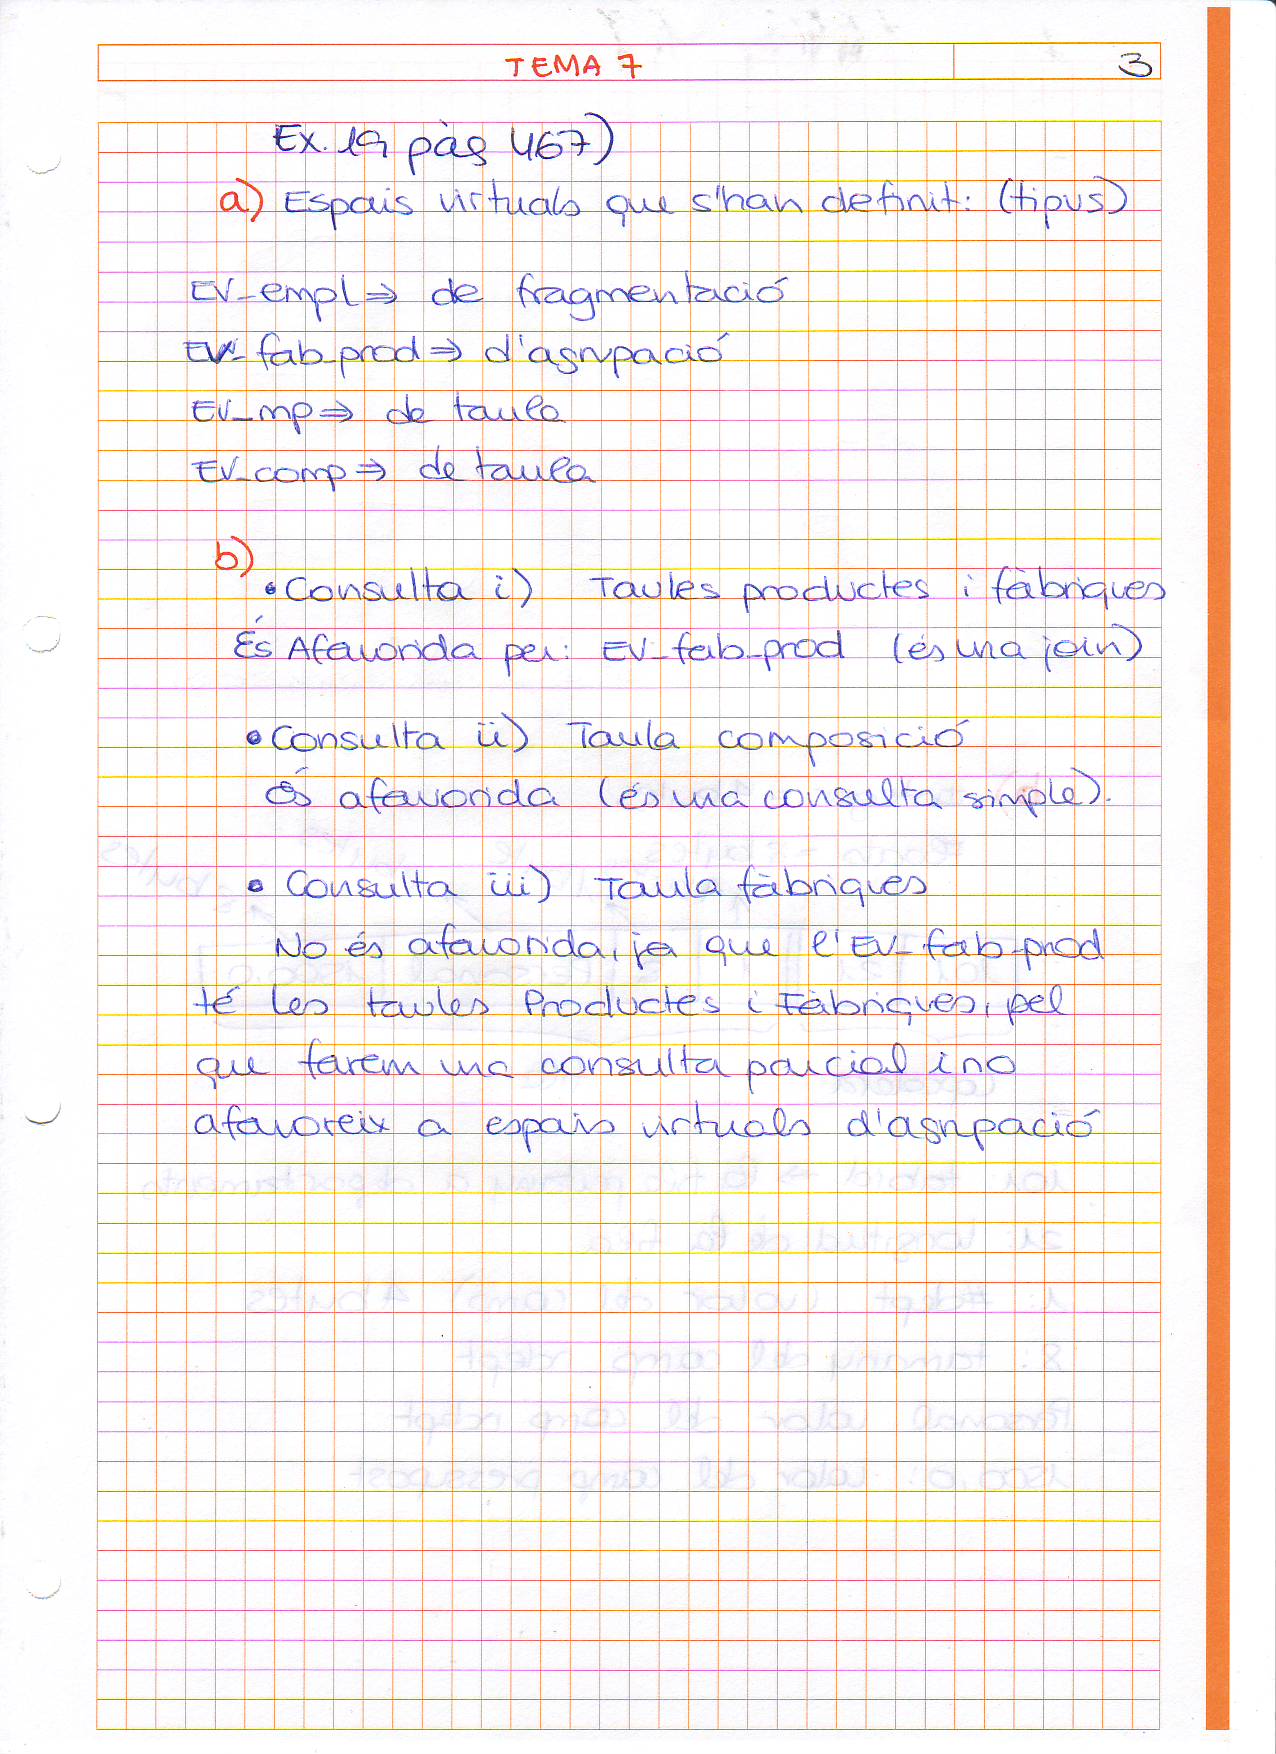 TEMA 7
3
Ex. 19 pàg 467)
a) Espais virtuals que s'han definit: (tipus)
EV_empl ⇒ de fragmentació
EV_fab_prod ⇒ d'agrupació
EV_mp ⇒ de taula
EV_comp ⇒ de taula
b)
• Consulta i) Taules productes i fàbriques
És Afavorida per: EV_fab_prod (és una join)
• Consulta ii) Taula composició
És afavorida (és una consulta simple).
• Consulta iii) Taula fàbriques
No és afavorida, ja que l'EV_fab_prod
té les taules Productes i Fàbriques, pel
que farem una consulta parcial i no
afavoreix a espais virtuals d'agrupació